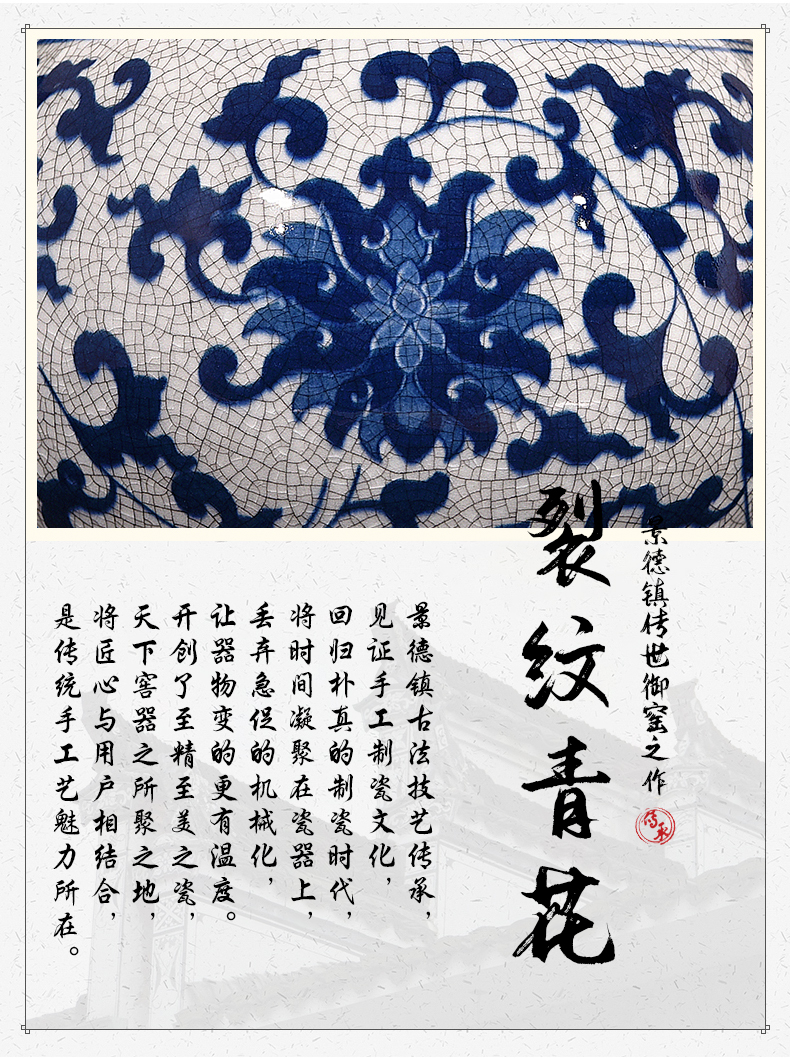 景德镇传世御窑之作
传承
裂纹青花
景德镇古法技艺传承，
见证手工制瓷文化，
回归朴真的制瓷时代，
将时间凝聚在瓷器上，
丢弃急促的机械化，
让器物变的更有温度。
开创了至精至美之瓷，
天下窖器之所聚之地，
将匠心与用户相结合，
是传统手工艺魅力所在。